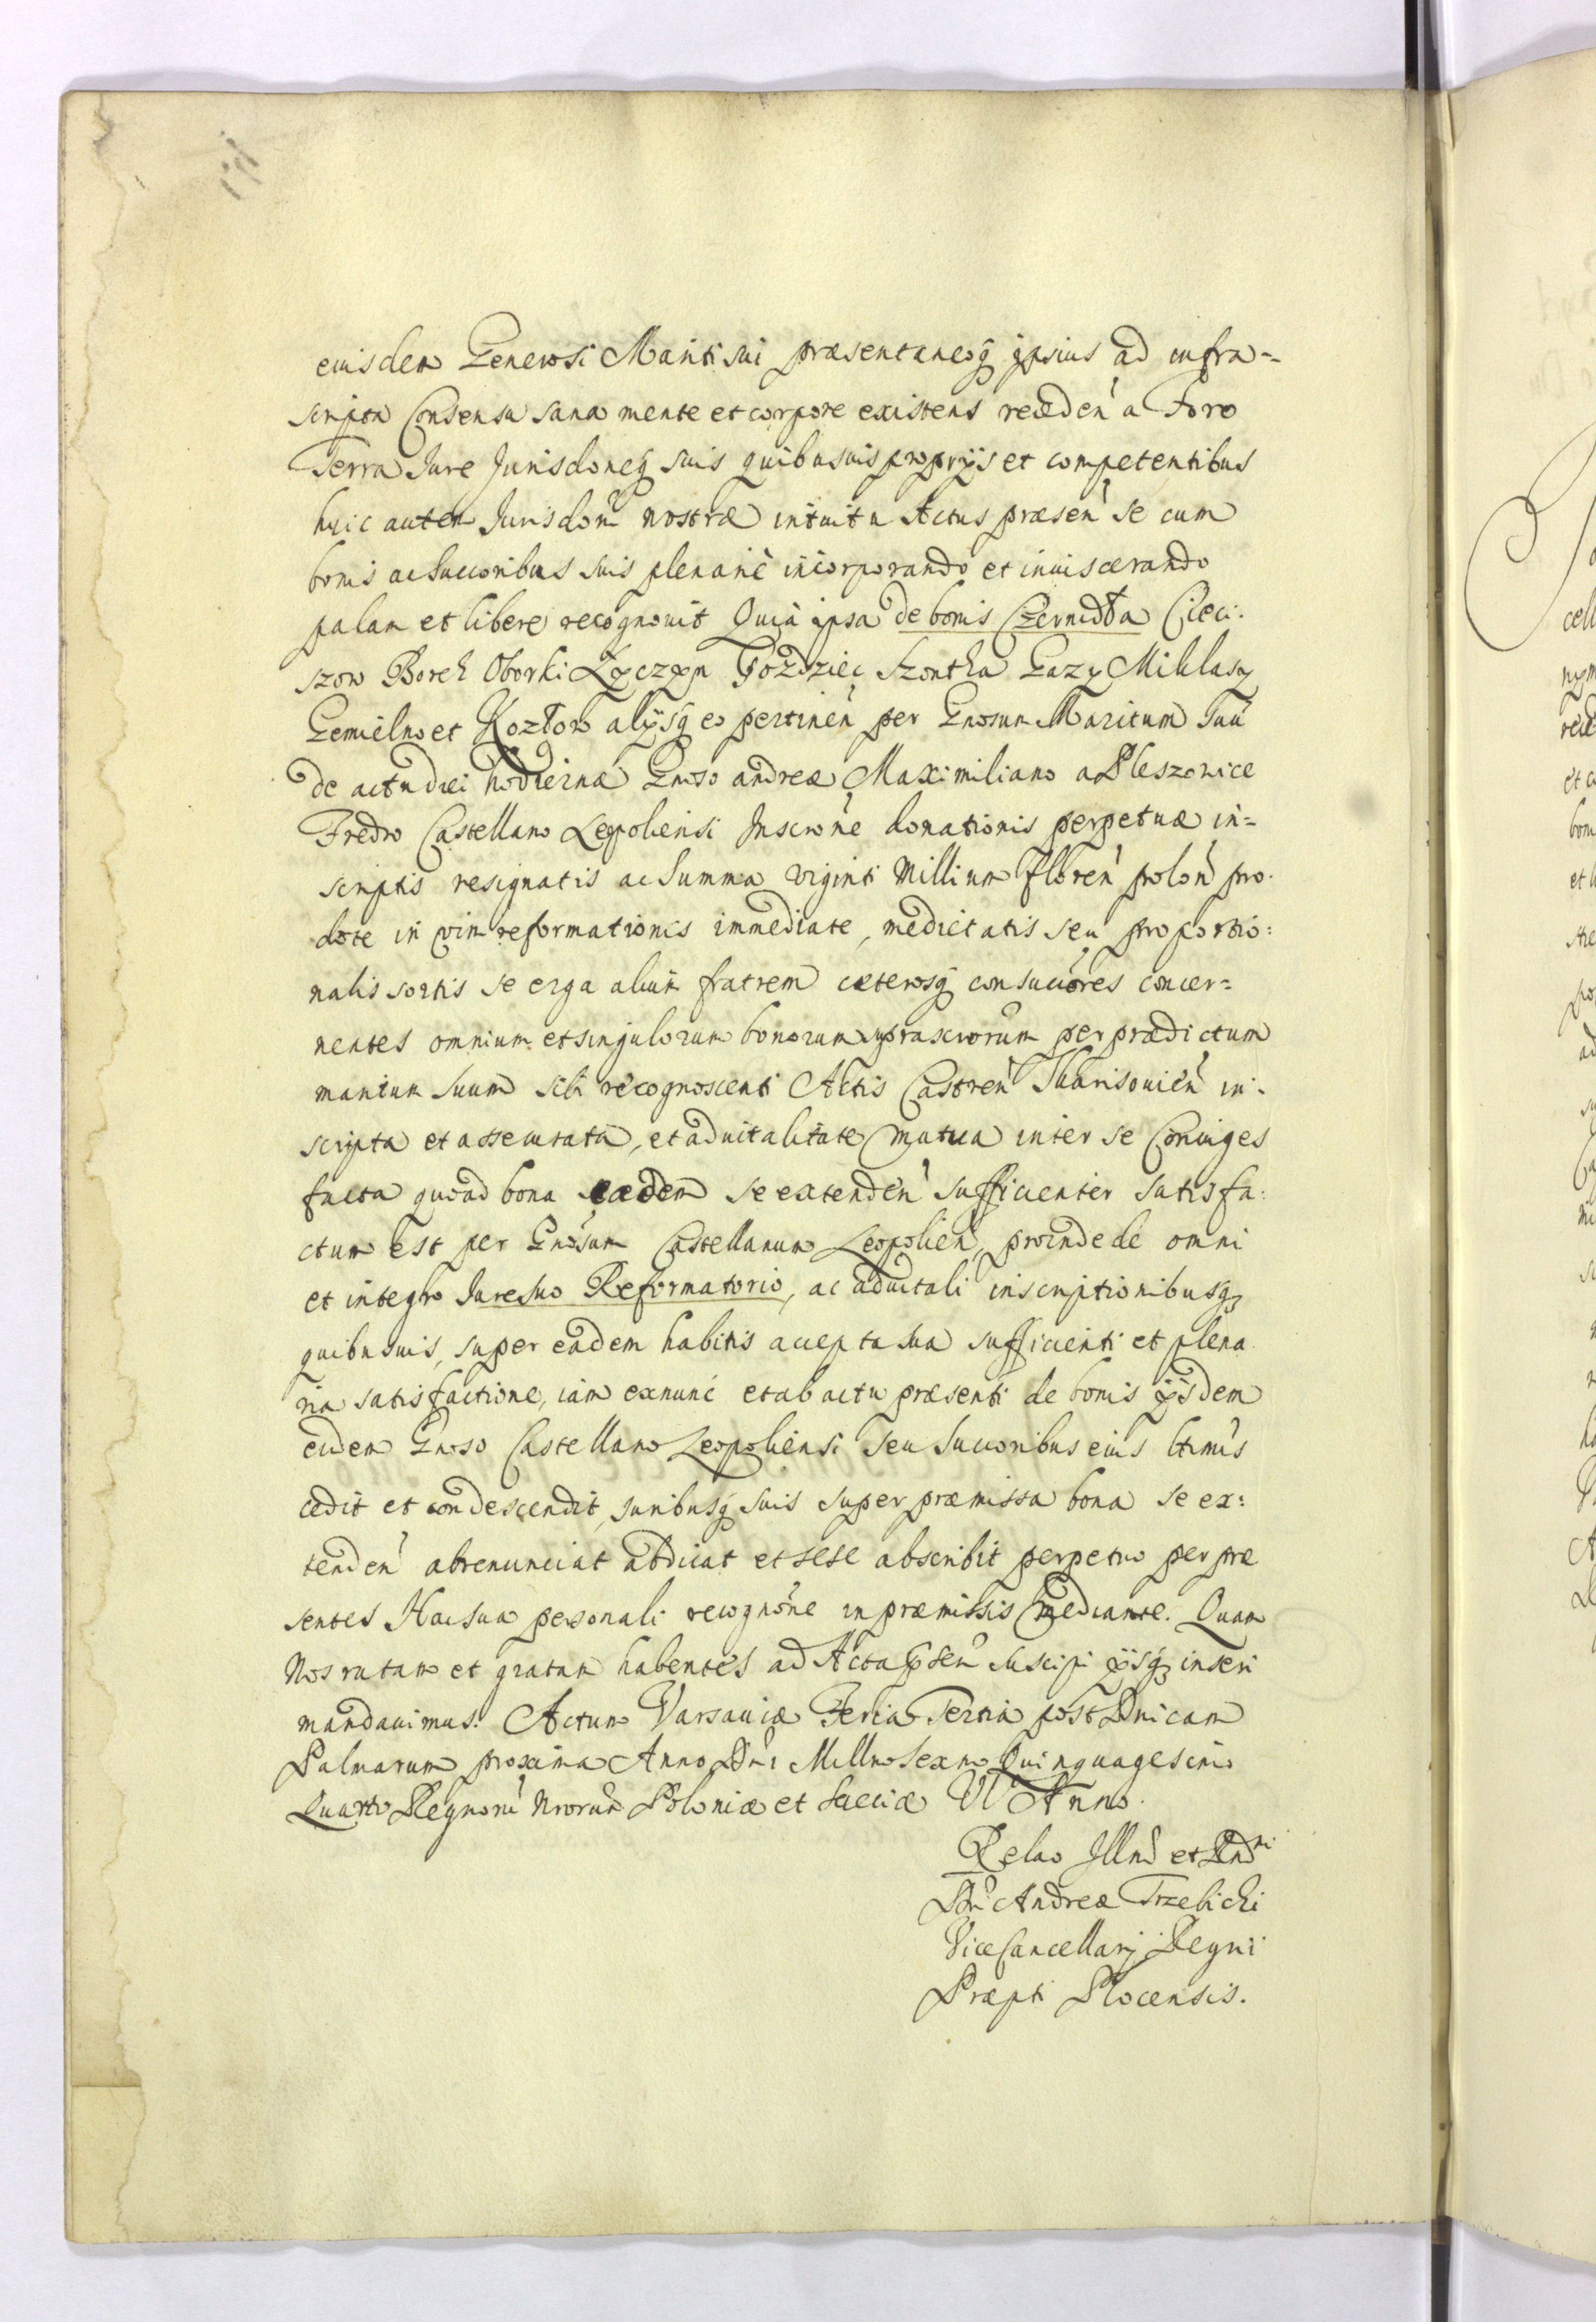 eiusdem Generosi Mariti sui præsentaneoq ipsius ad infra=
scripta Consensu sana mente et corpore existens receden̄ a Foro
Terra Jure Jurisdoneq suis quibusuis proprijs et competentibus
huic autem Jurisdoni nostræ intuitu Actus præsen̄ se cum
bonis ac Succoribus suis plenariè incorporando et inuiscerando
palam et libere recognouit Quia ipsa de bonis Czernidła Cieci:
szow Borek Oborki Łyczyn Gozdziec Szontka Gazy Miklasy
Gemielno et Kozłow alijsq eo pertinen̄ per Gnosum Maritum Suū
de actu diei hodiernæ Gnoso andreæ Maximiliano a Pleszowice
Fredro Castellano Leopoliensi Inscrone donationis perpetuæ in=
scriptis resignatis ac Summa viginti Millium floren̄ polon̄ pro
dote in vim reformationis immediate, medietatis seu proportio:
nalis sortis se erga alium fratrem cæterosq consuccores concer=
nentes omnium et singulorum bonorum suprascrorum per prædictum
maritum Suum sibi recognoscenti Actis Castren̄ inscripta
scripta et assecurata, et aduitalitate mutua inter se Coniuges
facta quoad bona eadem se extenden̄ sufficienter satisfa:
ctum est per Gnosum Castellanum Leopolien̄, proinde de omni
et integro Jure suo Reformatorio, ac aduitali inscriptionibusq
quibusuis, super eadem habitis accepta sua sufficienti et plena
ria satisfactione, iam exnunc et ab actu præsenti de bonis ijsdem
eidem Gnoso Castellano Leopoliensi seu Succoribus eius ltimis
cedit et condescendit, juribusq suis super præmissa bona se ex:
tenden̄ abrenunciat abdicat et sese abscribit perpetuo per præ
sentes Hac sua personali recognone in præmissis mediante. Quam
Nos ratam et gratam habentes ad Acta psen̄ suscipi ijsq inseri
mandauimus. Actum Varsauiæ Feria Tertia post Dnicam
Palmarum proxima Anno Dni Millmo Sexmo Quinquagesimo
Quarto Regnorū Nrorum Poloniæ et Sueciæ VI Anno.
Relao Illmi et Rndmi
Dni Andreæ Trzebicki
ViceCancellarij Regni
Præpti Plocensis.